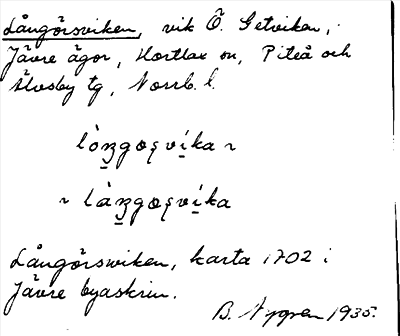 Långörsviken, vik Ö. Getviken,
Jävre ägor, Hortlax sn, Piteå och
Älvsby tg, Norrb. l.
lòŋgøʂvìka ~
~ làŋgøʂvìka
Långörswiken, karta 1702 i
Jävre byaskrin.
B. Nygren 1935.